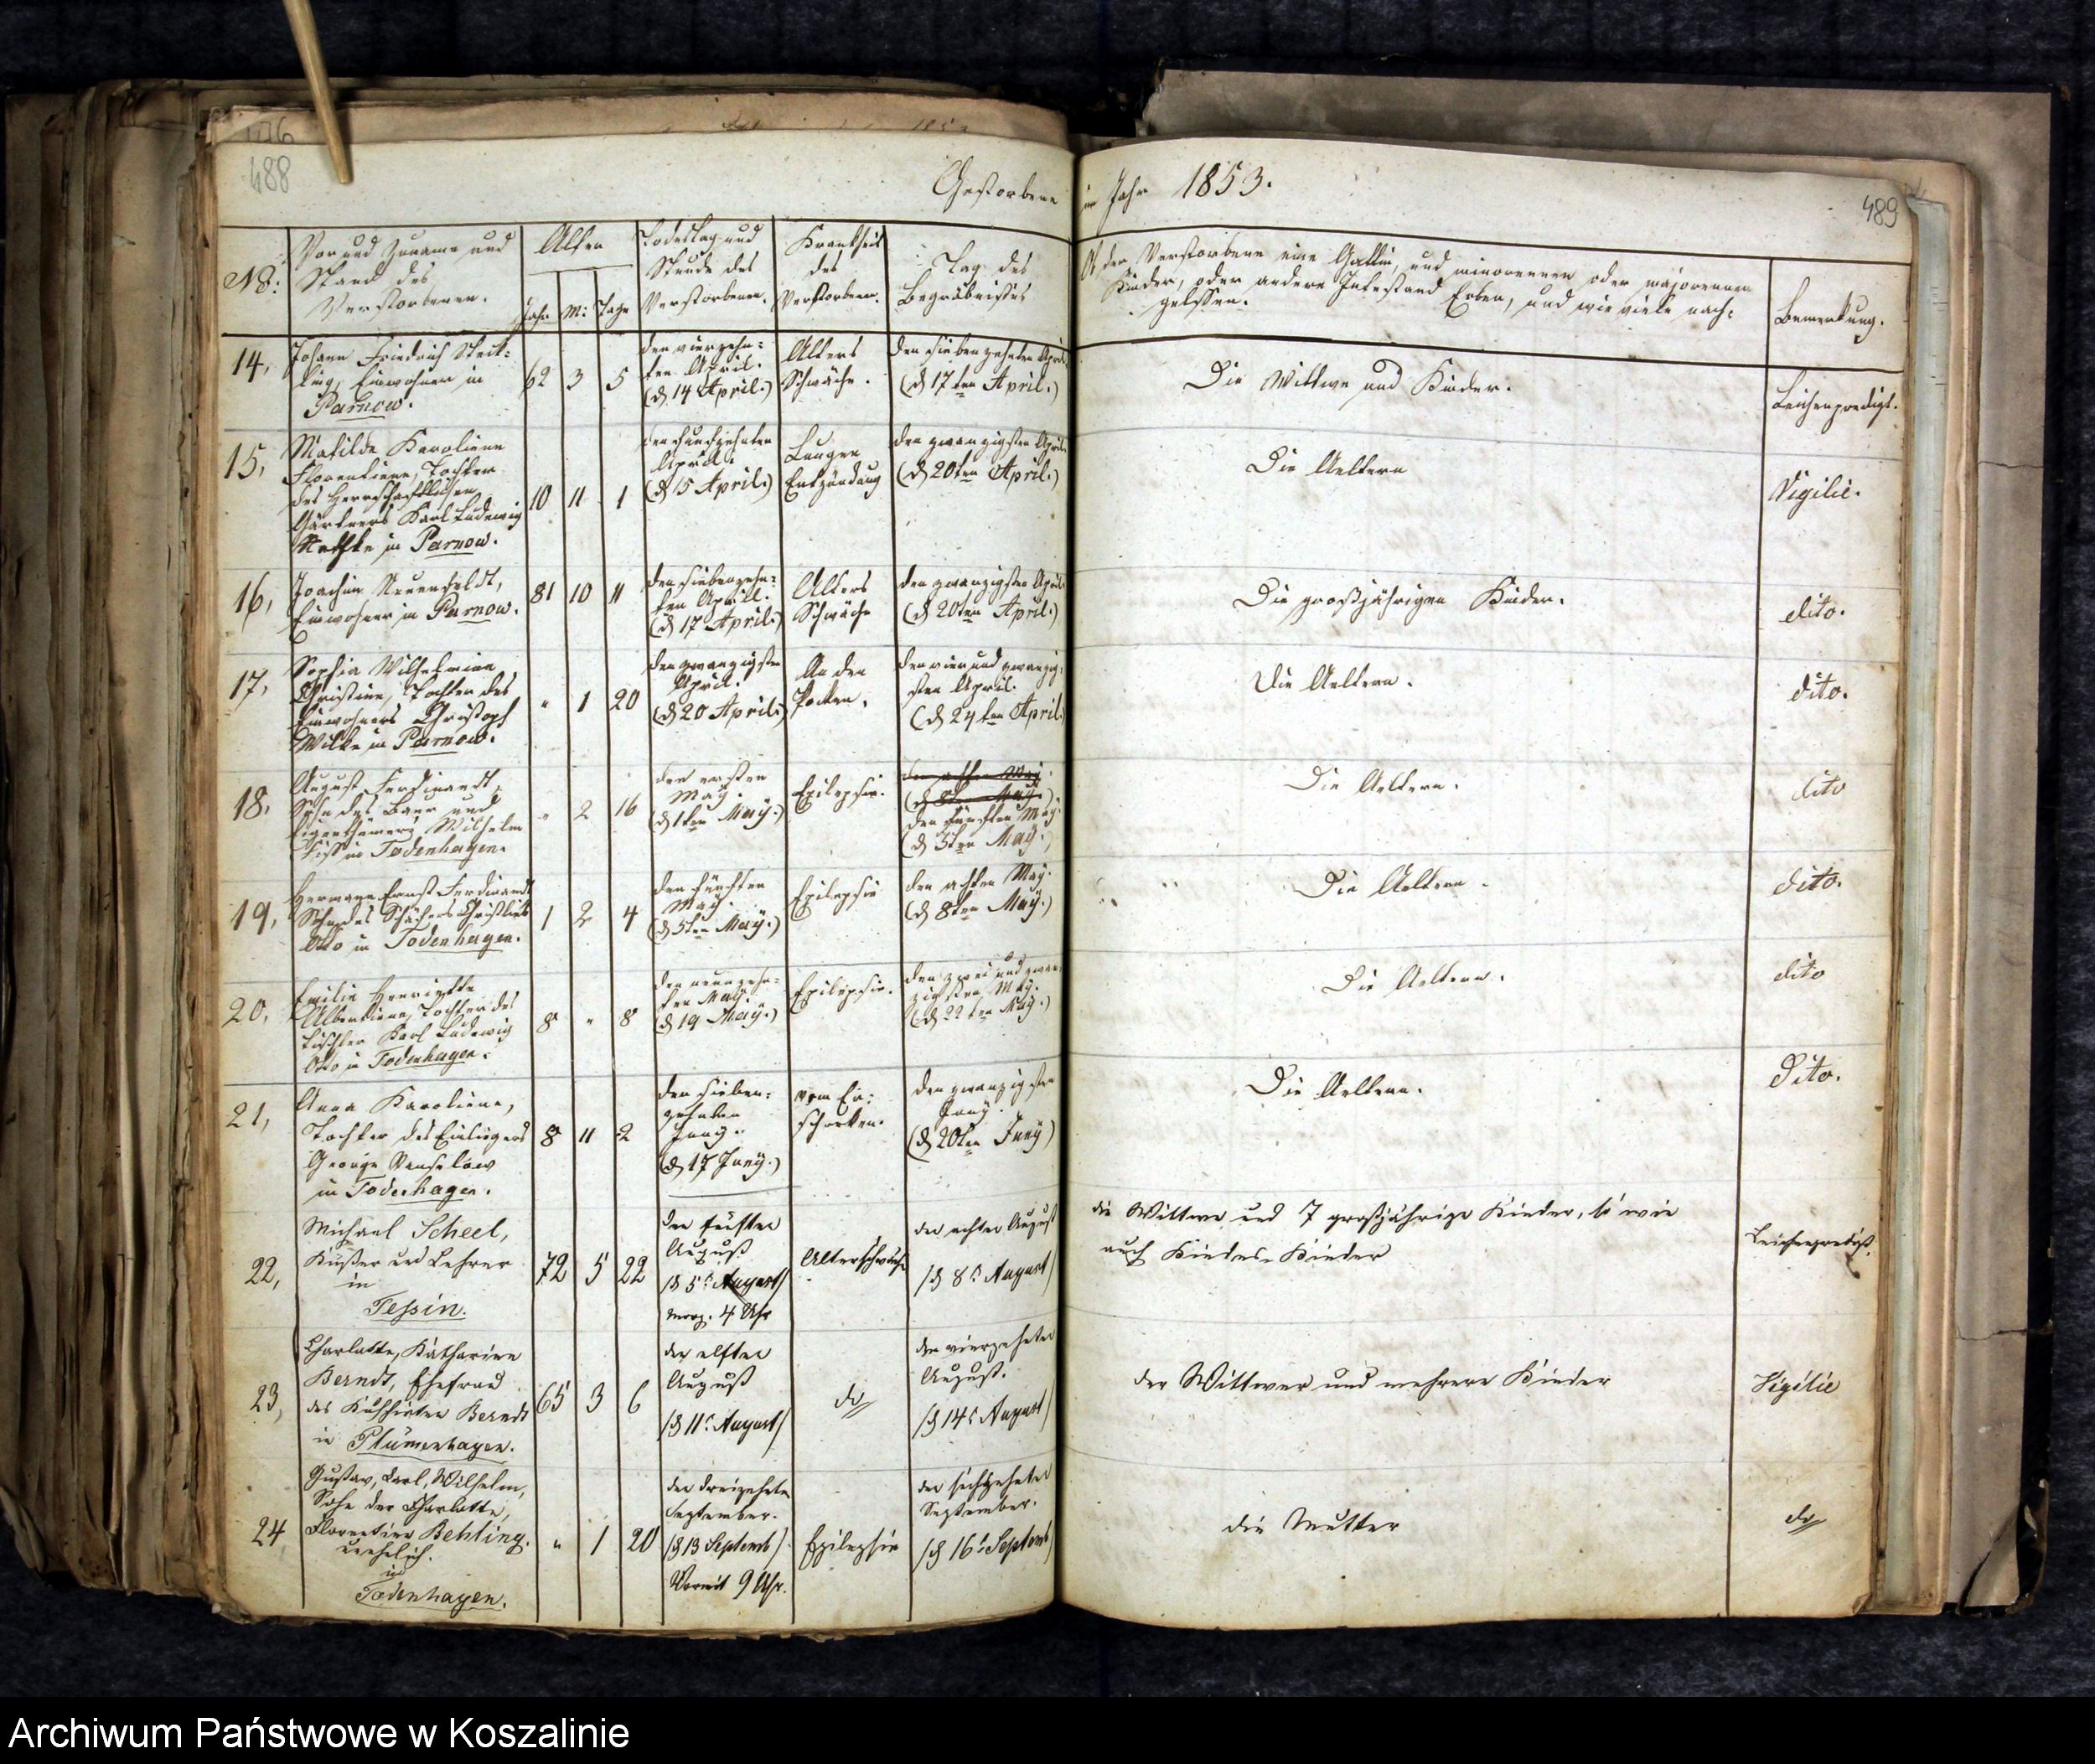 488
Gestorbene im Jahr 1853.
489
No:
Vor und Zuname und
Stand des
Verstorbenen.
Alter
Jahr M: Tage
Todestag und
Stunde des
Verstorbenen.
Krankheit
des
Verstorbenen.
Tag des
Begräbnisses
Ob der Verstorbene eine Gattin, und minorennen oder majorennen
Kinder, oder andere Intestand Erben, und wie viele nach:
gelassen.
Bemerkung.
14,
Johann Friedrich
Einwohner in
Parnow.
62 3 5
den vierzehn:
ten April.
(d 14 April.)
Alters
Schwäche.
den siebenzehnten April
(d 17ten April.)
Die Wittwe und Kinder.
Leichenpredigt.
15,
Matilde Karoliene
Florentiene, Tochter
des Herrschaftlichen
Gärtners Karl Ludewig
in Parnow.
10 11 1
den funfzehnten
April.
(d 15 April.)
Lungen
Entzündung
den zwanzigsten April
(d 20ten April.)
Die Aeltern
Vigilie.
16,
Joachim Neuenfeldt,
Einwohner in Parnow.
81 10 11
den siebenzehn:
ten April.
(d 17 April.)
Alters
Schwäche
den zwanzigsten April
(d 20ten April.)
Die großjährigen Kinder.
dito.
17,
Sophia Wilhelmine
Christine, Tochter des
Einwohners Christoph
Wilke in Parnow.
" 1 20
den zwanzigsten
April.
(d 20 April.)
An den
Pocken.
den vier und zwanzig:
sten April.
(d 24ten April.)
Die Aeltern.
dito.
18,
August Ferdinandt,
Sohn des Bauer und
Eigenthümers Wilhelm
in Todenhagen.
" 2 16
den ersten
May.
(d 1ten May.)
Epilepsie.
den achten May
(d 8ten May.)
den fünften May.
(d 5ten May.)
Die Aeltern.
dito
19,
Hermann Ernst Ferdinandt
Sohn des Schäfers Christlieb
Otto in Todenhagen.
1 2 4
den fünften
May.
(d 5ten May.)
Epilepsie
den achten May.
(d 8ten May.)
Die Aeltern.
dito.
20,
Emilie Henriette
Albertiene, Tochter des
Tischler Karl Ludewig
Otto in Todenhagen.
8 " 8
den neunzehn:
ten May.
(d 19 May.)
Epilepsie.
den zwei und zwan:
zigsten May.
(d 22ten May.)
Die Aeltern.
dito
21,
Anna Karoliene,
Tochter des Einliegers
George Venselow
in Todenhagen.
8 11 2
den sieben:
zehnten
Juny.
(d 17 Juny.)
vom Er:
schrecken.
den zwanzigsten
Juny.
(d 20ten Juny)
Die Aeltern.
Dito.
22,
Michael Scheel,
Küster und Lehrer
in
Tessin.
72 5 22
den fünften
August
/d 5t August/
morg. 4 Uhr
Altersschwäche
den achten August
/d 8t August/
die Wittwe und 7 großjährige Kinder, so wie
auch Kindes-Kinder
Leichenpredigt.
23,
Charlotte, Katharine
Berndt, Ehefrau
des Kuhhirten Berndt
in Plümenhagen.
65 3 6
den elften
August
/d 11t August/
do
den vierzehnten
August.
/d 14t August/
der Wittwer und mehrere Kinder
Vigilie
24
Gustav, Carl, Wilhelm,
Sohn der Charlotte,
Florentine Behling.
unehelich.
in
Todenhagen.
" 1 20
den dreizehnten
September.
/d 13 Septemb/
Vormit 9 Uhr.
Epilepsie
den sechszehnten
September.
/d 16t Septemb/
die Mutter
do
Archiwum Państwowe w Koszalinie